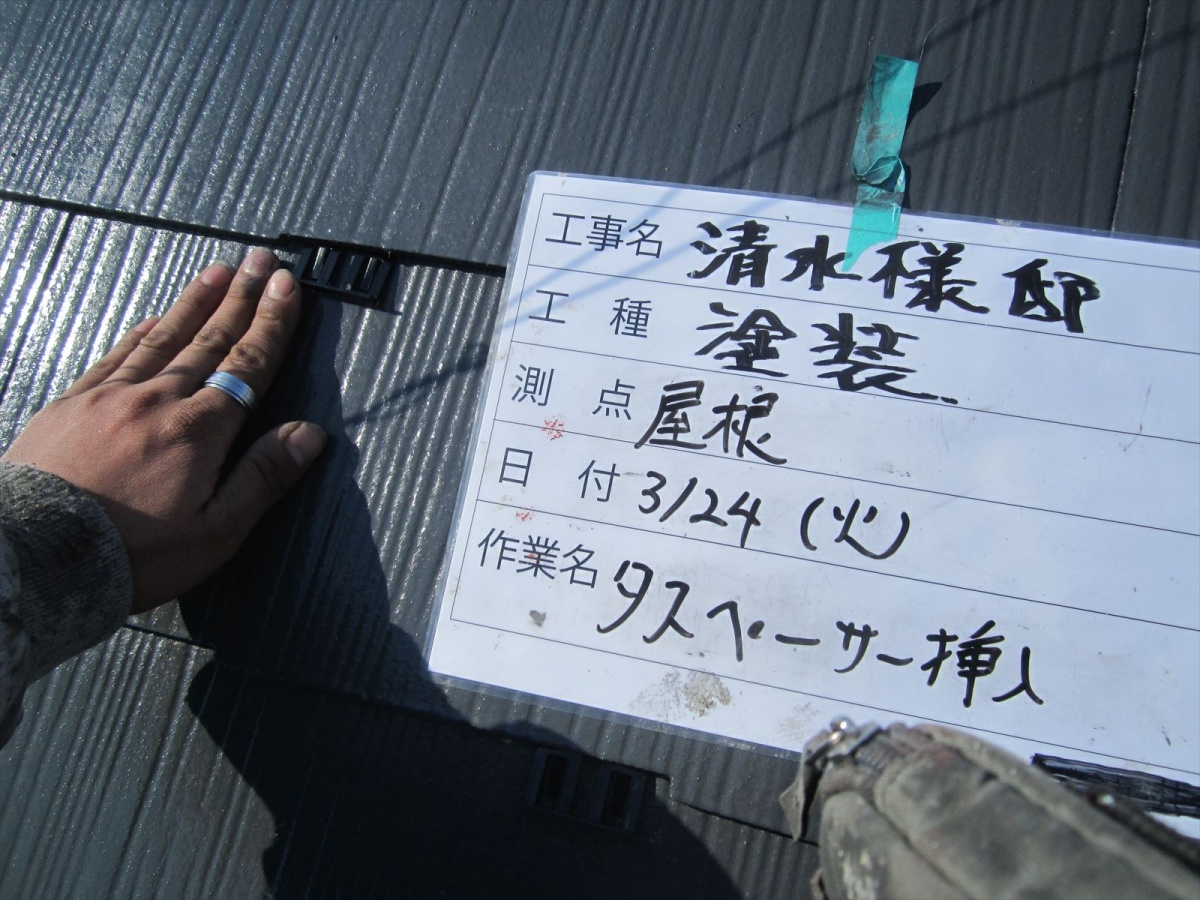 工事名 清水様邸
工種 塗装
測点 屋根
日付 3/24 (火)
作業名 タスペーサー挿入